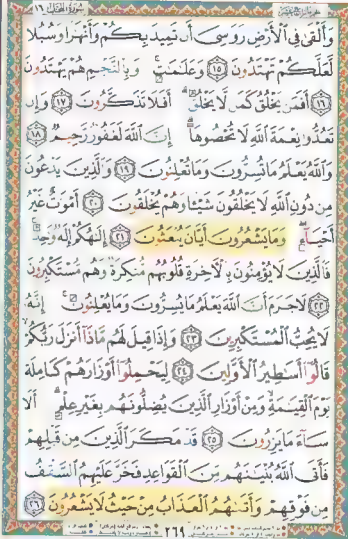 سُورَةُ النَّحْلِ ١٦
وَأَلْقَىٰ فِي الْأَرْضِ رَوَاسِيَ أَن تَمِيدَ بِكُمْ وَأَنْهَارًا وَسُبُلًا
لَّعَلَّكُمْ تَهْتَدُونَ ﴿١٥﴾ وَعَلَامَاتٍ وَبِالنَّجْمِ هُمْ يَهْتَدُونَ
﴿١٦﴾ أَفَمَن يَخْلُقُ كَمَن لَّا يَخْلُقُ أَفَلَا تَذَكَّرُونَ ﴿١٧﴾ وَإِن
تَعُدُّوا نِعْمَةَ اللَّهِ لَا تُحْصُوهَا إِنَّ اللَّهَ لَغَفُورٌ رَّحِيمٌ ﴿١٨﴾
وَاللَّهُ يَعْلَمُ مَا تُسِرُّونَ وَمَا تُعْلِنُونَ ﴿١٩﴾ وَالَّذِينَ يَدْعُونَ
مِن دُونِ اللَّهِ لَا يَخْلُقُونَ شَيْئًا وَهُمْ يُخْلَقُونَ ﴿٢٠﴾ أَمْوَاتٌ غَيْرُ
أَحْيَاءٍ وَمَا يَشْعُرُونَ أَيَّانَ يُبْعَثُونَ ﴿٢١﴾ إِلَٰهُكُمْ إِلَٰهٌ وَاحِدٌ
فَالَّذِينَ لَا يُؤْمِنُونَ بِالْآخِرَةِ قُلُوبُهُم مُّنكِرَةٌ وَهُم مُّسْتَكْبِرُونَ
﴿٢٢﴾ لَا جَرَمَ أَنَّ اللَّهَ يَعْلَمُ مَا يُسِرُّونَ وَمَا يُعْلِنُونَ إِنَّهُ
لَا يُحِبُّ الْمُسْتَكْبِرِينَ ﴿٢٣﴾ وَإِذَا قِيلَ لَهُم مَّاذَا أَنزَلَ رَبُّكُمْ
قَالُوا أَسَاطِيرُ الْأَوَّلِينَ ﴿٢٤﴾ لِيَحْمِلُوا أَوْزَارَهُمْ كَامِلَةً
يَوْمَ الْقِيَامَةِ وَمِنْ أَوْزَارِ الَّذِينَ يُضِلُّونَهُم بِغَيْرِ عِلْمٍ أَلَا
سَاءَ مَا يَزِرُونَ ﴿٢٥﴾ قَدْ مَكَرَ الَّذِينَ مِن قَبْلِهِمْ
فَأَتَى اللَّهُ بُنْيَانَهُم مِّنَ الْقَوَاعِدِ فَخَرَّ عَلَيْهِمُ السَّقْفُ
مِن فَوْقِهِمْ وَأَتَاهُمُ الْعَذَابُ مِنْ حَيْثُ لَا يَشْعُرُونَ ﴿٢٦﴾
٢٦٩